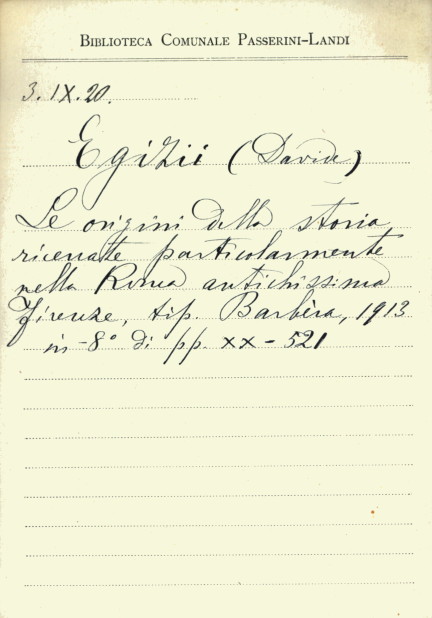 BIBLIOTECA COMUNALE PASSERINI-LANDI
3. IX. 20.
Egizii (Davide)
Le origini della storia
ricercate particolarmente
nella Roma antichissima
Firenze, tip. Barbèra, 1913
in-8° di pp. XX - 521